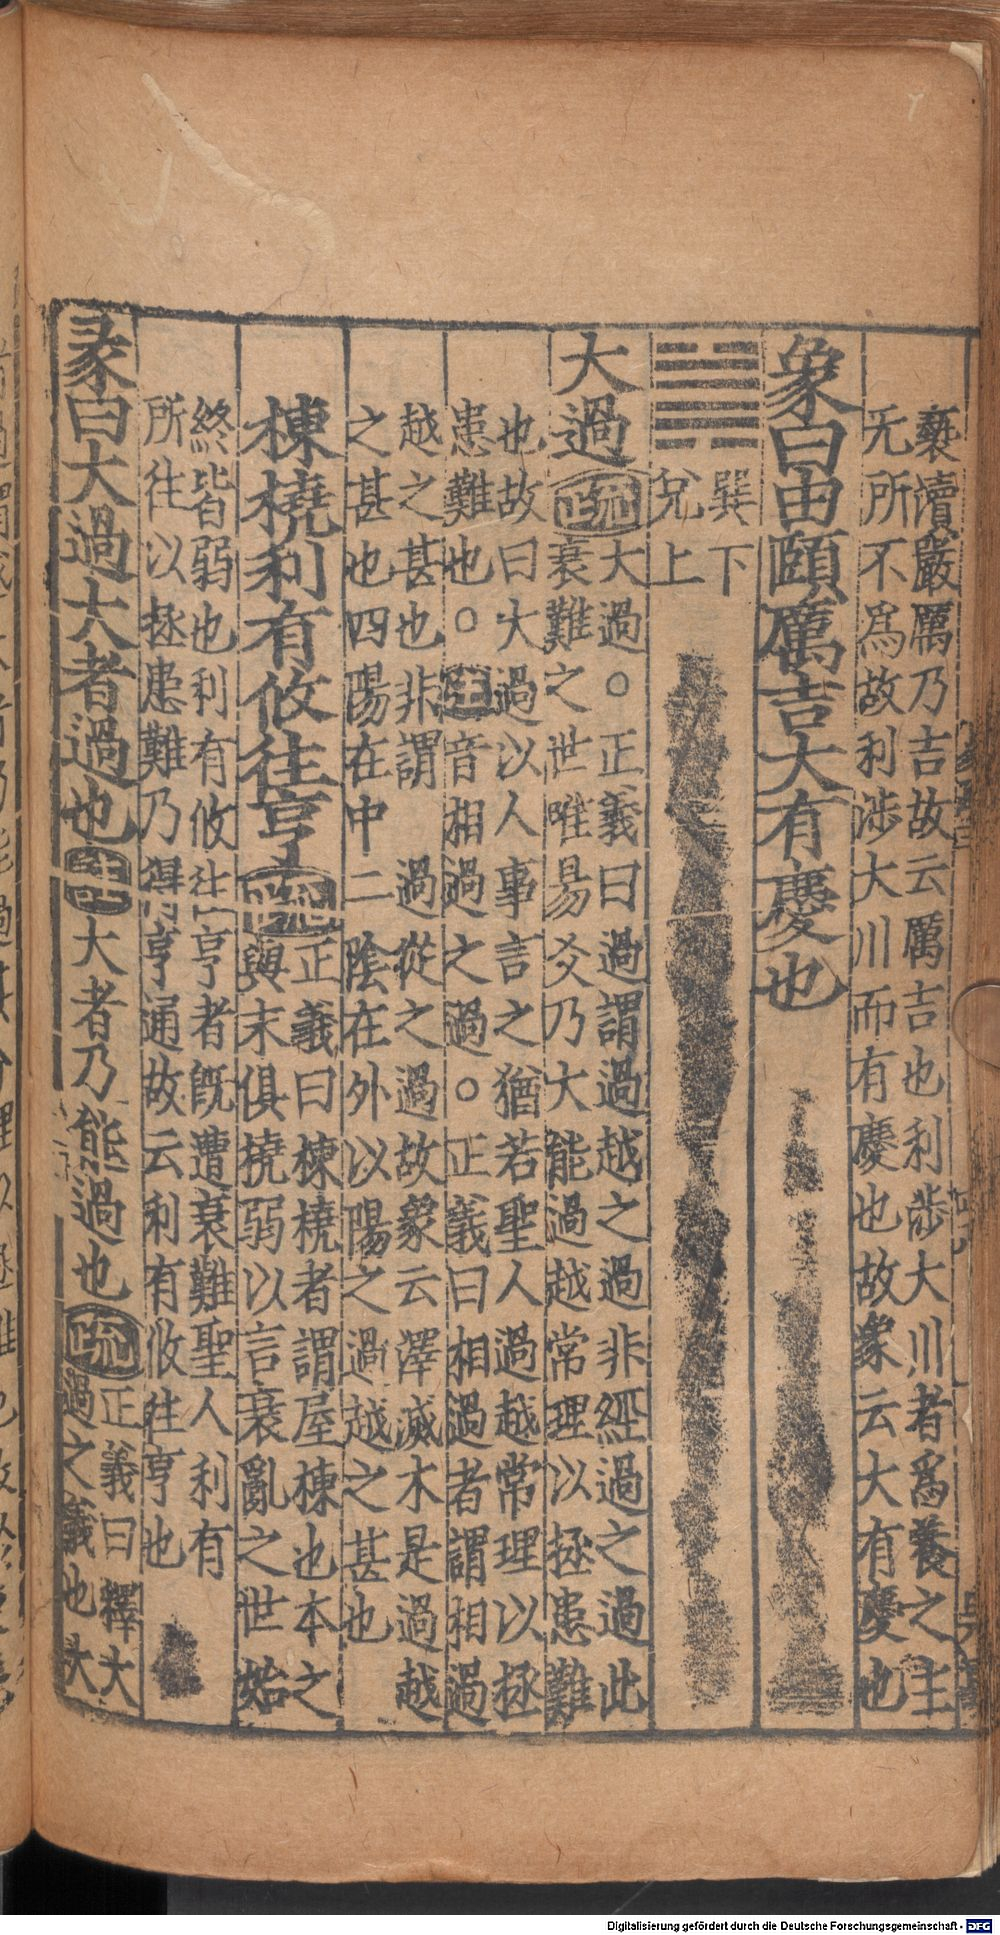 褻瀆嚴厲乃吉故云厲吉也利涉大川者爲養之主
无所不爲故利涉大川而有慶也故象云大有慶也
象曰由頤厲吉大有慶也
巽下
兌上
大過
疏
大過○正義曰過謂過越之過非經過之過此
衰難之世唯易爻乃大能過越常理以拯患難
也故曰大過以人事言之猶若聖人過越常理以拯
患難也○注音相過之過○正義曰相過者謂相過
越之甚也非謂過從之過故象云澤滅木是過越
之甚也四陽在中二陰在外以陽之過越之甚也
棟橈利有攸往亨
疏
正義曰棟橈者謂屋棟也本之
與末俱橈弱以言衰亂之世始
終皆弱也利有攸往亨者旣遭衰難聖人利有
所往以拯患難乃得亨通故云利有攸往亨也
彖曰大過大者過也
注
大者乃能過也
疏
正義曰釋大
過之義也大
Digitalisierung gefördert durch die Deutsche Forschungsgemeinschaft - DFG